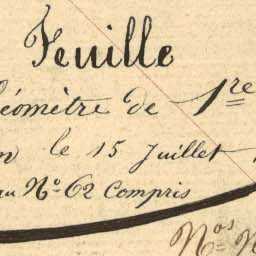 Feuille
éomètre de 1re
le 15 Juillet
au No 62 Compris
Nos